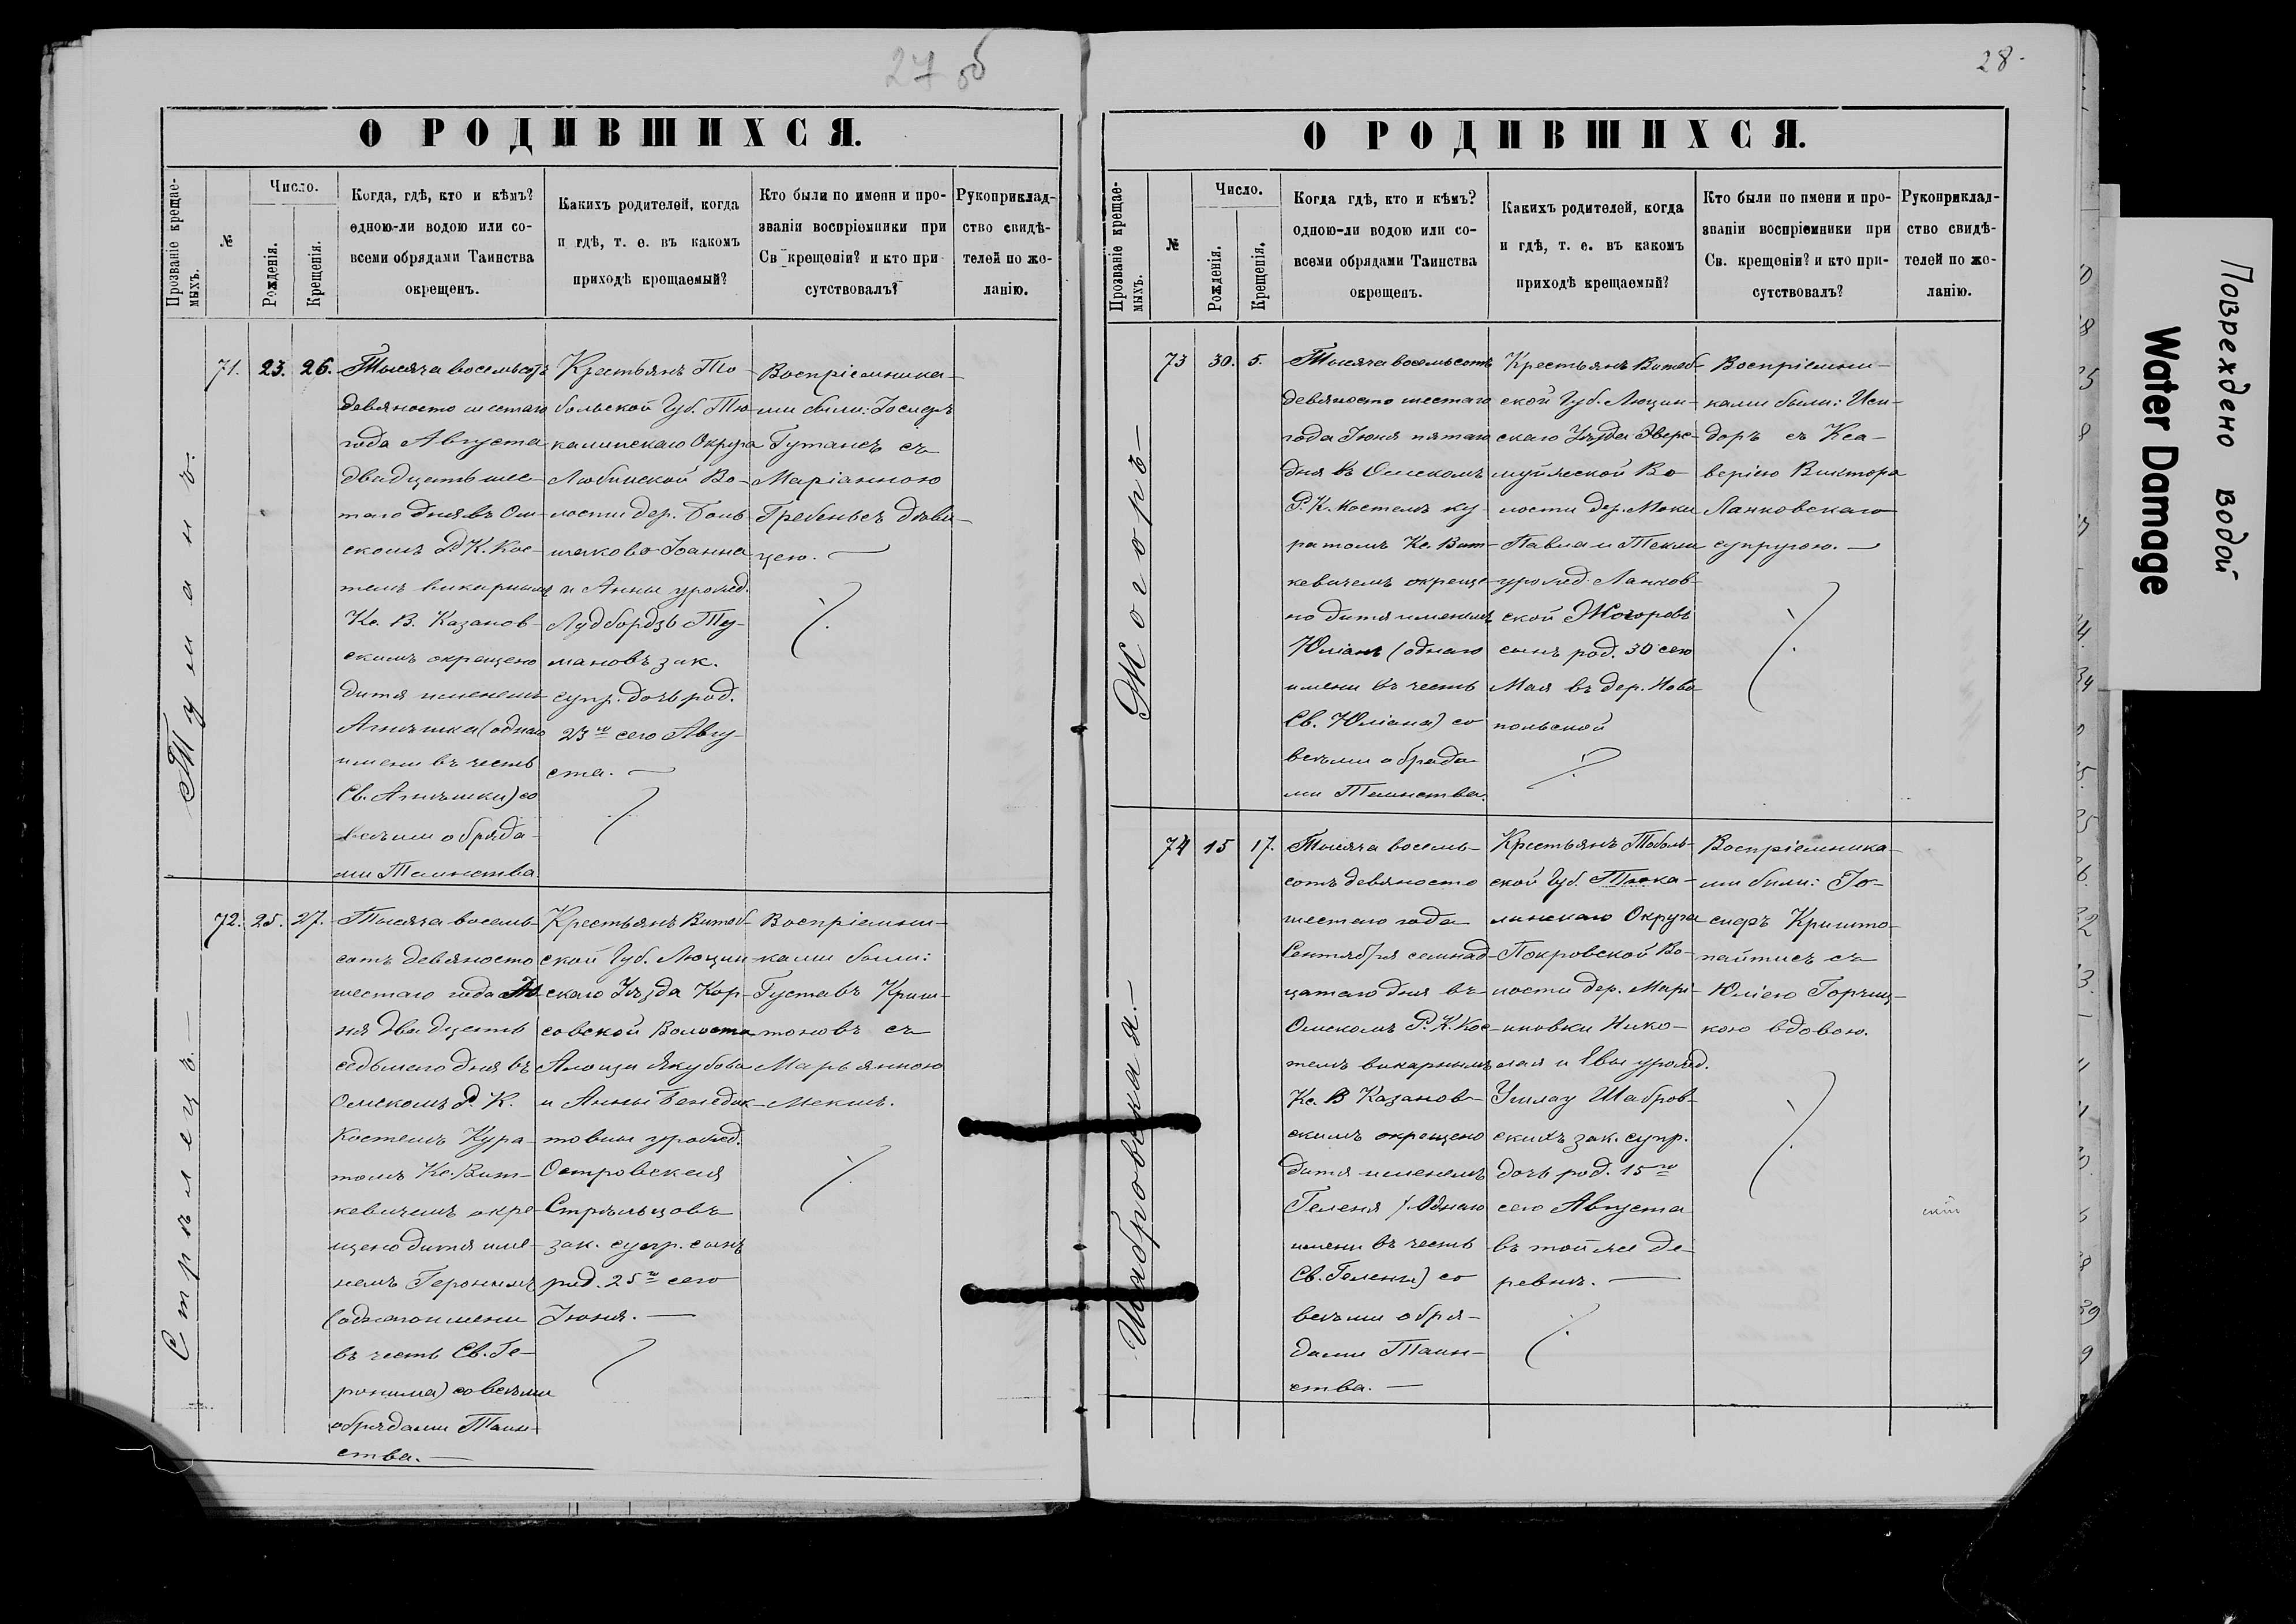 27 об
О РОДИВШИХСЯ.
Прозваніе крещае-
мыхъ.
№
Число.
Рожденія.
Крещенія.
Когда, гдѣ, кто и кѣмъ?
едною-ли водою или со-
всеми обрядами Таинства
окрещенъ.
Какихъ родителей, когда
и гдѣ, т. е. въ какомъ
приходѣ крещаемый?
Кто были по имени и про-
званіи воспріемники при
Св крещеніи? и кто при-
сутствовалъ?
Рукоприклад-
ство свидѣ-
телей по же-
ланію.
Туманъ.
71.
23.
26.
Тысяча восемьсотъ
девяносто шестаго
года Августа
двадцать шес-
таго дня въ Ом-
скомъ Р. К. Кос-
телѣ викарнымъ
Кс. В. Казанов-
скимъ окрещено
дитя именемъ
Агнѣшка (однаго
имени въ честь
Св. Агнѣшки) со
всѣми обряда-
ми Таинства
Крестьянъ То-
больской Губ. Тю-
калинскаго Округа
Любинской Во-
лости дер. Боль
шаково Іоанна
и Анны урожд.
Лудбордзь Ту-
мановъ зак.
супр. дочь род.
23го сего Авгу-
ста. —
Воспріемника-
ми были: Іосифъ
Гутанъ съ
Маріанною
Гребенъ дѣви-
цею. —
Стрѣлецъ. —
72.
25.
27.
Тысяча восемь-
сотъ девяносто
шестаго года Ію-
ня двадцать
седьмого дня въ
Омскомъ Р. К.
Костелѣ Кура-
томъ Кс. Вит-
кевичемъ окре-
щено дитя име-
немъ Геронимъ
(одного имени
въ честь Св. Ге-
ронима) со всѣми
обрядами Таин-
ства. —
Крестьянъ Витеб-
ской Губ. Люцин-
скаго Уѣзда Кор-
совской Волости
Алоиза Якубова
и Анны Бенедик-
товны урожд.
Островская
Стрѣльцовъ
зак. супр. сынъ
род. 25го сего
Іюня. —
Воспріемни-
ками были:
Густавъ Криш-
тоновъ съ
Марьянною
Мекшъ.
28.
О РОДИВШИХСЯ.
Прозваніе крещае-
мыхъ.
№
Число.
Рожденія.
Крещенія.
Когда гдѣ, кто и кѣмъ?
одною-ли водою или со-
всеми обрядами Таинства
окрещенъ.
Какихъ родителей, когда
и гдѣ, т. е. въ какомъ
приходѣ крещаемый?
Кто были по имени и про-
званіи воспріемники при
Св. крещеніи? и кто при-
сутствовалъ?
Рукоприклад-
ство свидѣ-
телей по же-
ланію.
Жогоръ —
73
30.
5.
Тысяча восемьсотъ
девяносто шестаго
года Іюня пятаго
дня въ Омскомъ
Р. К. Костелѣ ку-
ратомъ Кс. Вит-
кевичемъ окреще-
но дитя именемъ
Юліанъ (однаго
имени въ честь
Св. Юліана) со
всѣми обряда
ми Таинства.
Крестьянъ Витеб-
ской Губ. Люцин-
скаго Уѣзда Эверс-
муйжской Во-
лости дер. Моки
Павла и Теклы
урожд. Ланков-
ской Жогоровъ
сынъ род. 30 сего
Мая въ дер. Ново
польской
Воспріемни-
ками были: Иси-
доръ съ Кса-
веріею Виктора
Ланковскаго
супругою. —
Шабровская. —
74
15
17.
Тысяча восемь-
сотъ девяносто
шестаго года
Сентября семнад-
цатаго дня въ
Омскомъ Р. К. Кос-
телѣ викарнымъ
Кс. В Казанов-
скимъ окрещено
дитя именемъ
Геленя (Однаго
имени въ честь
Св. Гелены) со
всѣми обря-
дами Таин-
ства. —
Крестьянъ Тоболь-
ской Губ. Тюка-
линскаго Округа
Покровской Во-
лости дер. Мари-
новки Нико-
лая и Евы урожд.
Ушлау Шабров-
скихъ зак. супр.
дочь род. 15го
сего Августа
въ той же де-
ревнѣ. —
Воспріемника-
ми были: Іо-
сифъ Кришто-
пайтисъ съ
Юліею
кою вдовою.
Повреждено водой
Water Damage